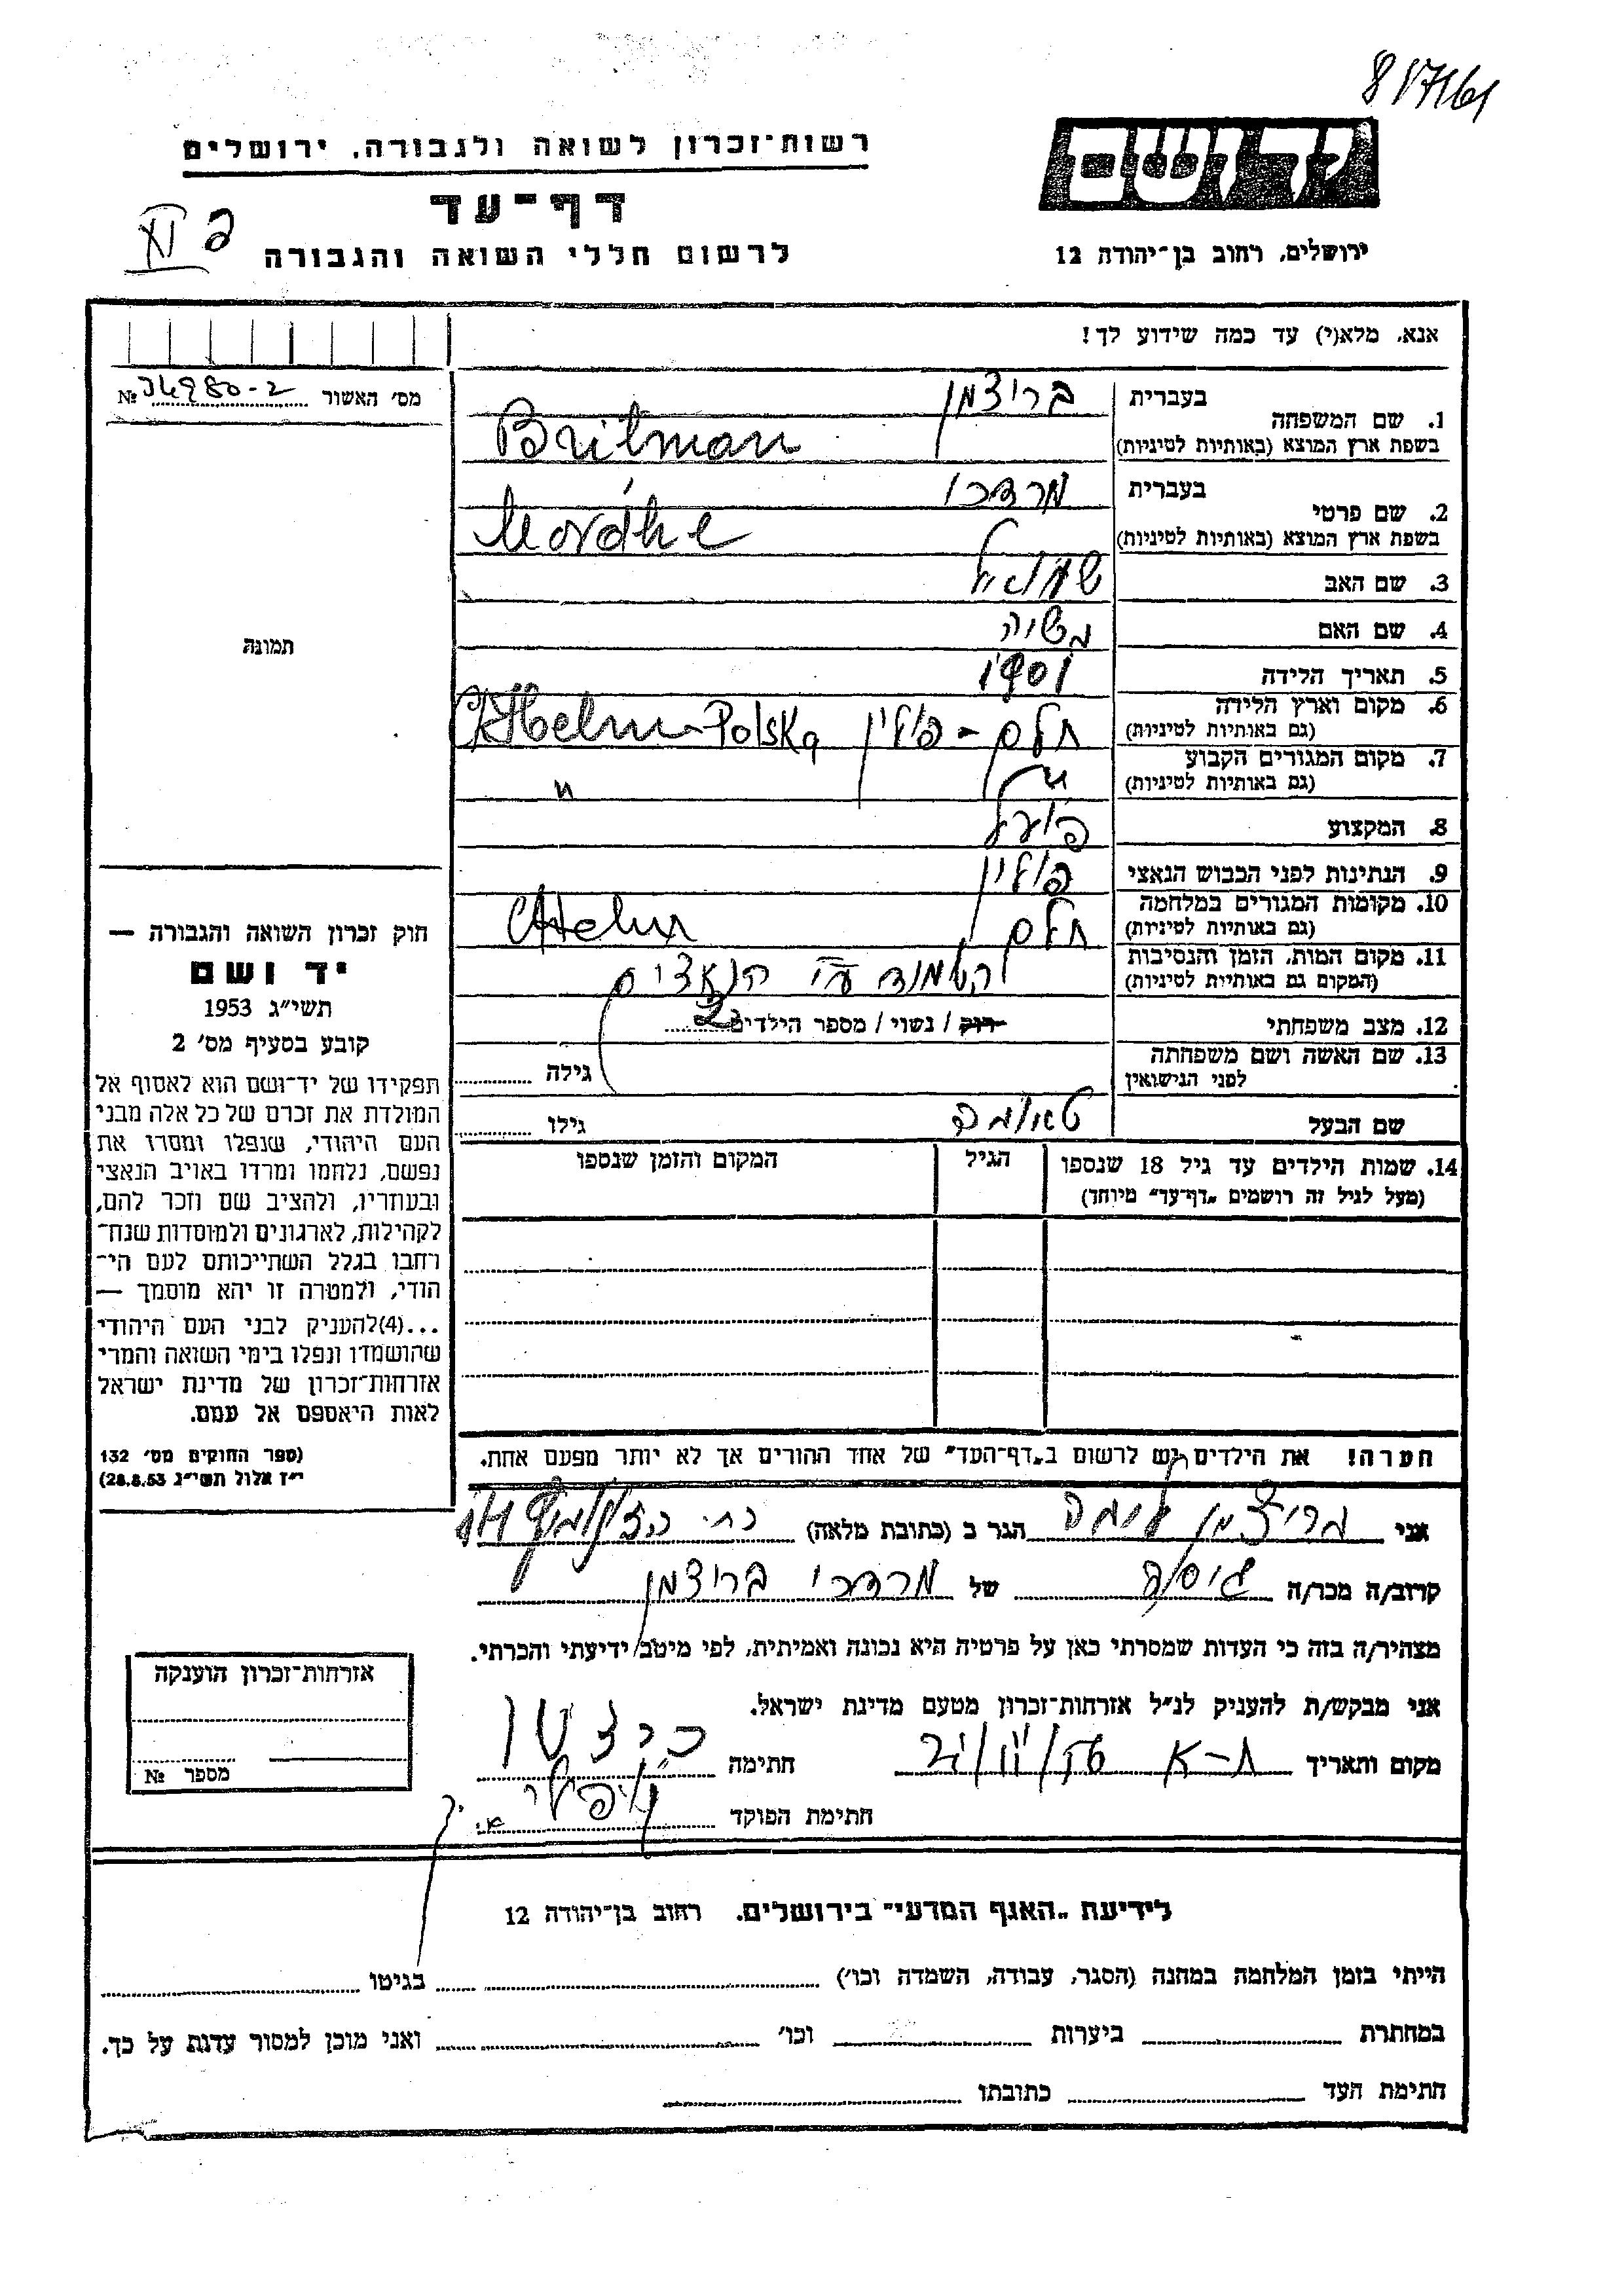 817161
רשות־זכרון לשואה ולגבורה, ירושלים
יד ושם
דף־עד
לרשום חללי השואה והגבורה
ירושלים, רחוב בן־יהודה 12
אנא, מלא(י) עד כמה שידוע לך!
מס׳ האשור № 34980-2
1. שם המשפחה
בעברית ברויטמן
בשפת ארץ המוצא (באותיות לטיניות) Britman
2. שם פרטי
בעברית מרדכי
בשפת ארץ המוצא (באותיות לטיניות)
3. שם האב שמואל
4. שם האם
5. תאריך הלידה 1901
6. מקום וארץ הלידה
(גם באותיות לטיניות) חלם - פולין Polska
7. מקום המגורים הקבוע
(גם באותיות לטיניות) "
8. המקצוע פועל
9. הנתינות לפני הכבוש הנאצי פולין
10. מקומות המגורים במלחמה
(גם באותיות לטיניות) חלם Chelm
11. מקום המות, הזמן והנסיבות
(המקום גם באותיות לטיניות) הושמד ע״י הנאצים
12. מצב משפחתי רוק / נשוי / מספר הילדים 2
13. שם האשה ושם משפחתה
לפני הנישואין גילה
שם הבעל גילו
14. שמות הילדים עד גיל 18 שנספו
(מעל לגיל זה רושמים „דף־עד״ מיוחד)
הגיל
המקום והזמן שנספו
תמונה
חוק זכרון השואה והגבורה —
יד ושם
תשי״ג 1953
קובע בסעיף מס׳ 2
תפקידו של יד־ושם הוא לאסוף אל
המולדת את זכרם של כל אלה מבני
העם היהודי, שנפלו ומסרו את
נפשם, נלחמו ומרדו באויב הנאצי
ובעוזריו, ולהציב שם וזכר להם,
לקהילות, לארגונים ולמוסדות שנח־
רבו בגלל השתייכותם לעם הי־
הודי, ולמטרה זו יהא מוסמך —
...(4) להעניק לבני העם היהודי
שהושמדו ונפלו בימי השואה והמרי
אזרחות־זכרון של מדינת ישראל
לאות היאספם אל עמם.
(ספר החוקים מס׳ 132
י״ז אלול תשי״ג 28.8.53)
הערה! את הילדים יש לרשום ב„דף־העד״ של אחד ההורים אך לא יותר מפעם אחת.
אני ברויטמן הגר ב (כתובת מלאה) רח׳
קרוב/ה מכר/ה גיסה של מרדכי ברויטמן
מצהיר/ה בזה כי העדות שמסרתי כאן על פרטיה היא נכונה ואמיתית, לפי מיטב ידיעתי והכרתי.
אני מבקש/ת להעניק לנ״ל אזרחות־זכרון מטעם מדינת ישראל.
מקום ותאריך ת-א חתימה
חתימת הפוקד
אזרחות־זכרון הוענקה
מספר №
לידיעת „האגף המדעי״ בירושלים, רחוב בן־יהודה 12
הייתי בזמן המלחמה במחנה (הסגר, עבודה, השמדה וכו׳) בגיטו
במחתרת ביערות וכו׳ ואני מוכן למסור עדות על כך.
חתימת העד כתובתו